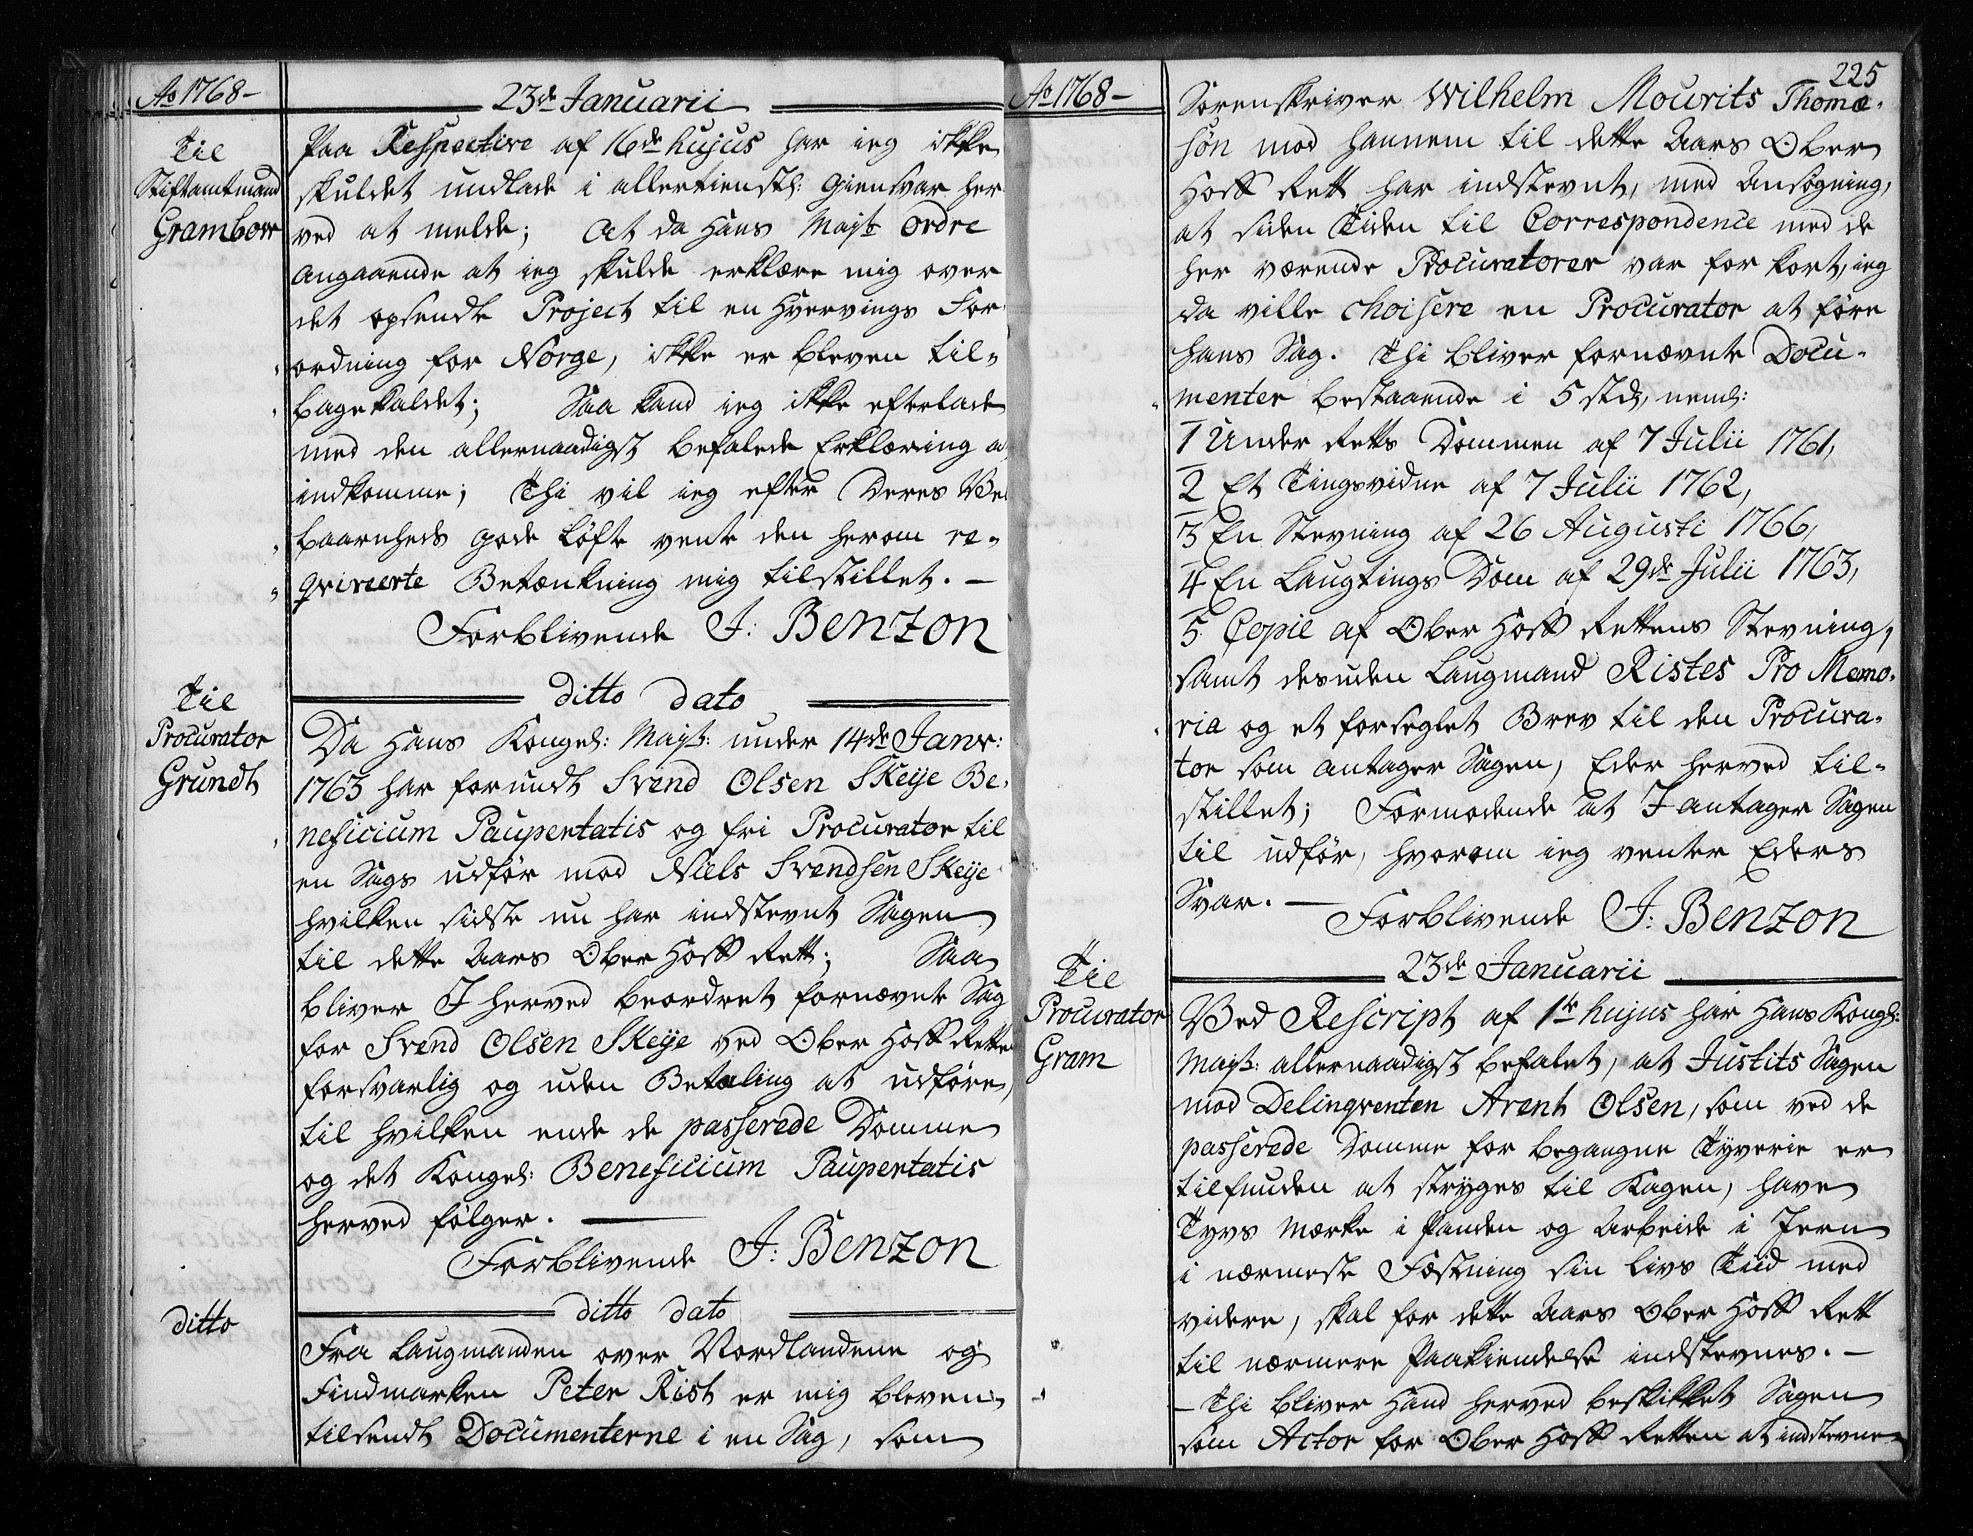 Ao 1768-
23de Januarii
Til
Stiftamtmand
Grambow
Paa Respective af 16de hujus har ieg ikke
skuldet undlade i allertienstl: Giensvar her
ved at melde; At da Hans Mayt: Ordre
angaaende at ieg skulde erklære mig over
det opsendte Project til en Hvervings For
ordning for Norge, ikke er bleven til-
bagekaldet; Saa kand ieg ikke efterlade
med den allernaadigst befalede Erklæring a
indkomme; Thi vil ieg efter Deres Vel
baarnheds gode Løfte vente den herom re-
qvireerte Betænkning mig tilstillet. -
Forblivende J: Benzon
ditto dato
Til
Procurator
Grundt
Da Hans Kongel: Mayt: under 14de Janr:
1763 har forundt Svend Olsen Skeije Be-
neficium Paupertatis og fri Procurator til
en Sags udför mod Niels Svendsen Skeije
hvilken sidste nu har indstevnt Sagen
til dette Aars Ober Hoff Rett; Saa
bliver I herved beordret fornævnte Sag
for Svend Olsen Skeije ved Ober Hoff Retten
forsvarlig og uden Betaling at udföre,
til hvilken ende de passerede Domme
og det Kongel: Beneficium Paupertatis
herved fölger. -
Forblivende J: Benzon
ditto dato
ditto
Fra Laugmanden over Nordlandene og
Findmarken Peter Rist er mig bleven
tilsendt Documenterne i en Sag, som
Ao 1768-
225
Sorenskriver Wilhelm Mourits Thomæ-
sön mod hannem til dette Aars Ober
Hoff Rett har indstevnt, med Ansögning,
at siden Tiden til Correspondence med de
her værende Procuratorer var for kort, ieg
da ville choisere en Procurator at före
hans Sag. Thi bliver fornævnte Docu-
menter bestaaende i 5 stk, neml:
1 Under Retts Dommen af 7 Julii 1761,
2 Et Tingsvidne af 7 Julii 1762,
3 En Stevning af 26 Augusti 1766,
4 En Laugtings Dom af 29de Julii 1763,
5. Copie af Ober Hoff Rettens Stevning,
samt desuden Laugmand Ristes Pro Memo-
ria og et forseglet Brev til den Procura-
tor som antager Sagen, Eder herved til-
stillet; Formodende at I antager Sagen
til udför, hvorom ieg venter Eders
Svar. -
Forblivende J: Benzon
23de Januarii
Til
Procurator
Gram
Ved Rescript af 1ste hujus har Hans Kongl:
Mayt: allernaadigst befalet, at Justits Sagen
mod Delinqventen Arent Olsen, som ved de
passerede Domme for begangne Tyverie er
tilfunden at stryges til Kagen, have
Tyvs Mærke i Panden og Arbeide i Jern
i nærmeste Fæstning sin Livs Tiid med
videre, skal for dette Aars Ober Hoff Rett
til nærmere Paakiendelse indstevnes. -
- Thi bliver Hand herved beskikket Sagen
som Actor for Ober Hoff Retten at indstevne